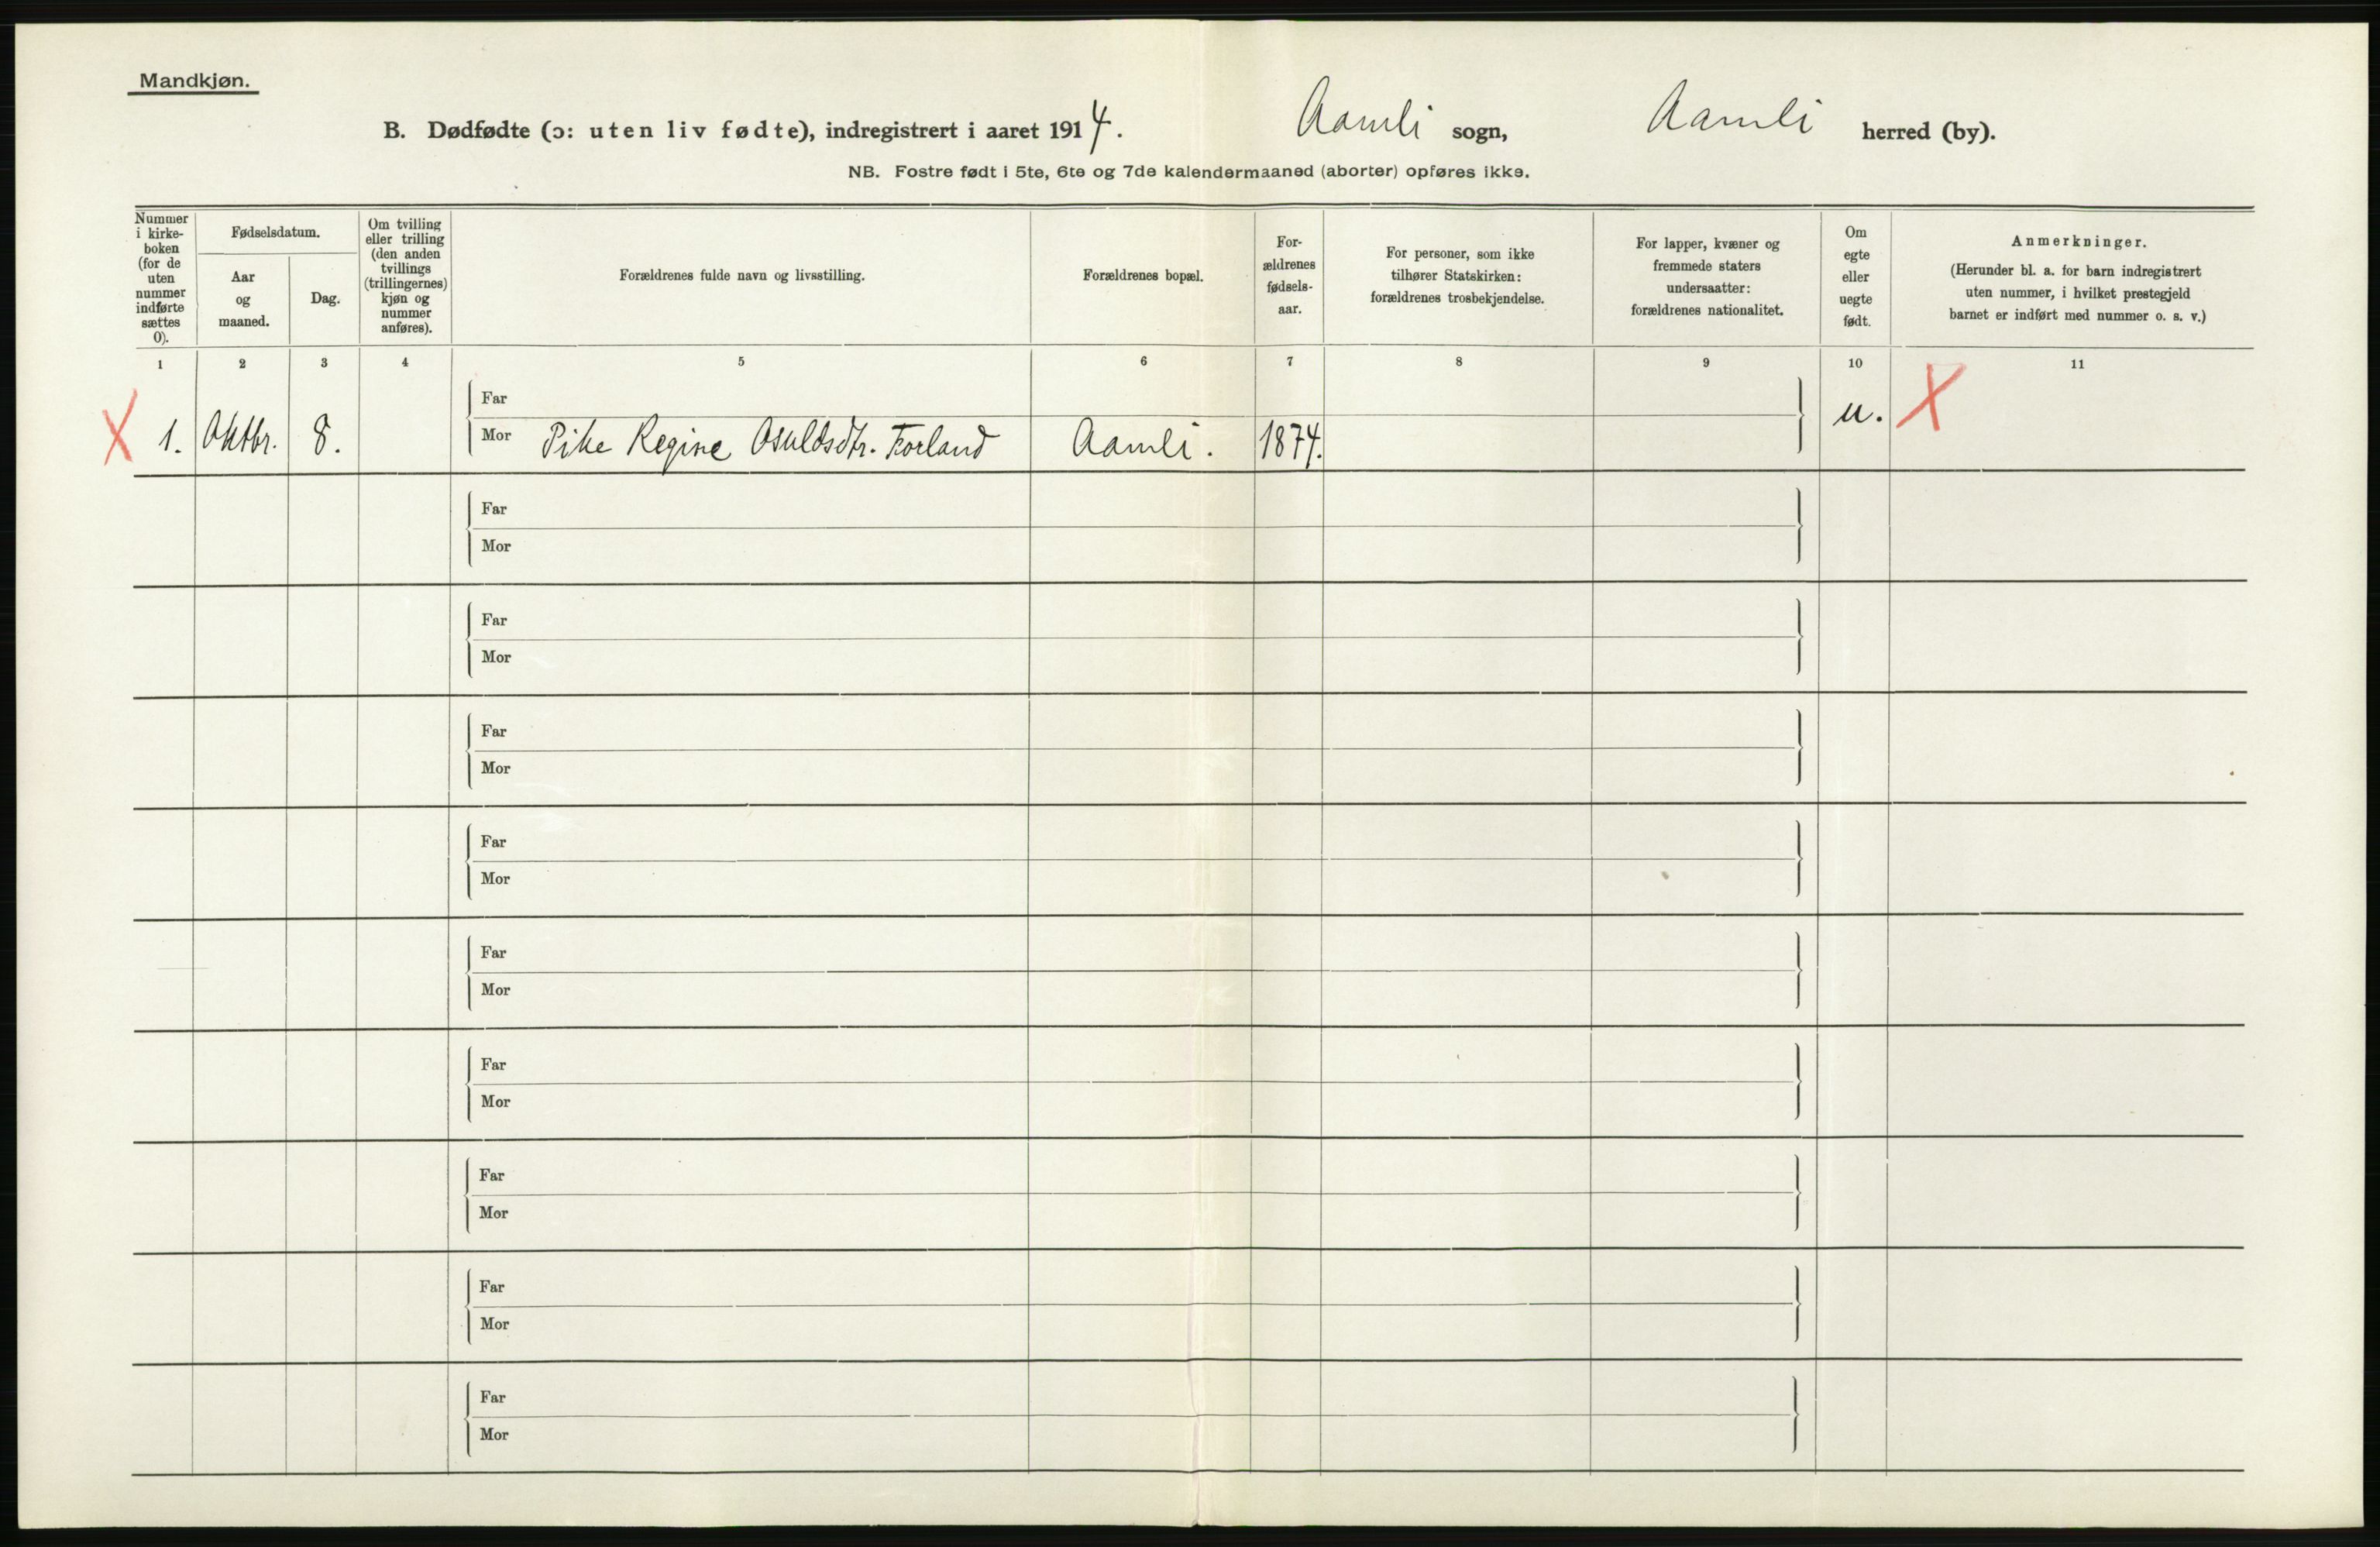 Mandkjøn.
B. Dødfødte (ɔ: uten liv fødte), indregistrert i aaret 1914. Aamli sogn, Aamli herred (by).
NB. Fostre født i 5te, 6te og 7de kalendermaaned (aborter) opføres ikke.
Nummer
i kirke-
boken
(for de
uten
nummer
indførte
sættes
0).
Fødselsdatum.
Aar
og
maaned.
Dag.
Om tvilling
eller trilling
(den anden
tvillings
(trillingernes)
kjøn og
nummer
anføres).
Forældrenes fulde navn og livsstilling.
Forældrenes bopæl.
For-
ældrenes
fødsels-
aar.
For personer, som ikke
tilhører Statskirken:
forældrenes trosbekjendelse.
For lapper, kvæner og
fremmede staters
undersaatter:
forældrenes nationalitet.
Om
egte
eller
uegte
født.
Anmerkninger.
(Herunder bl. a. for barn indregistrert
uten nummer, i hvilket prestegjeld
barnet er indført med nummer o. s. v.)
1 2 3 4 5 6 7 8 9 10 11
Far
X 1. Oktbr. 8. Mor Pike Regine Osuldsdtr. Forland Aamli. 1874. u. X
Far
Mor
Far
Mor
Far
Mor
Far
Mor
Far
Mor
Far
Mor
Far
Mor
Far
Mor
Far
Mor